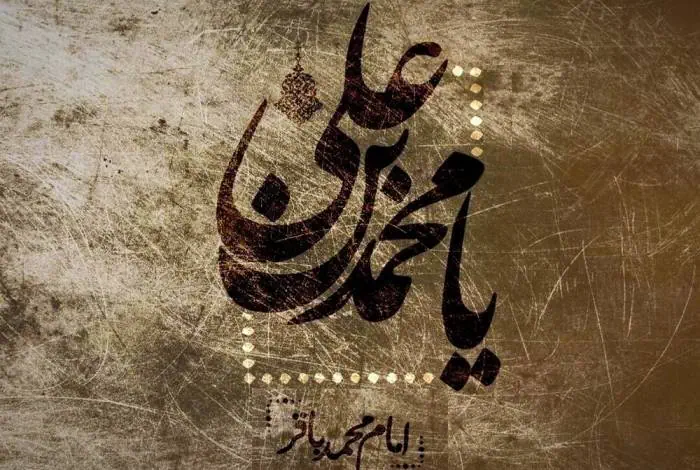 یا محمد بن علی
امام محمد باقر